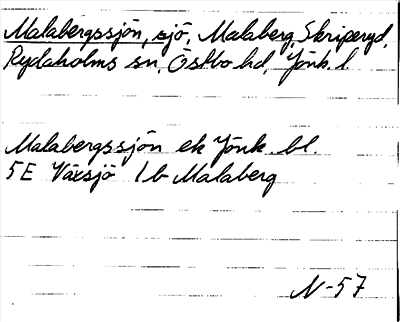 Malabergssjön, sjö, Malaberg, Skriperyd,
Rydaholms sn, Östbo hd, Jönk. l
Malabergssjön ek Jönk bl.
5E Växsjö 1b Malaberg
N-57